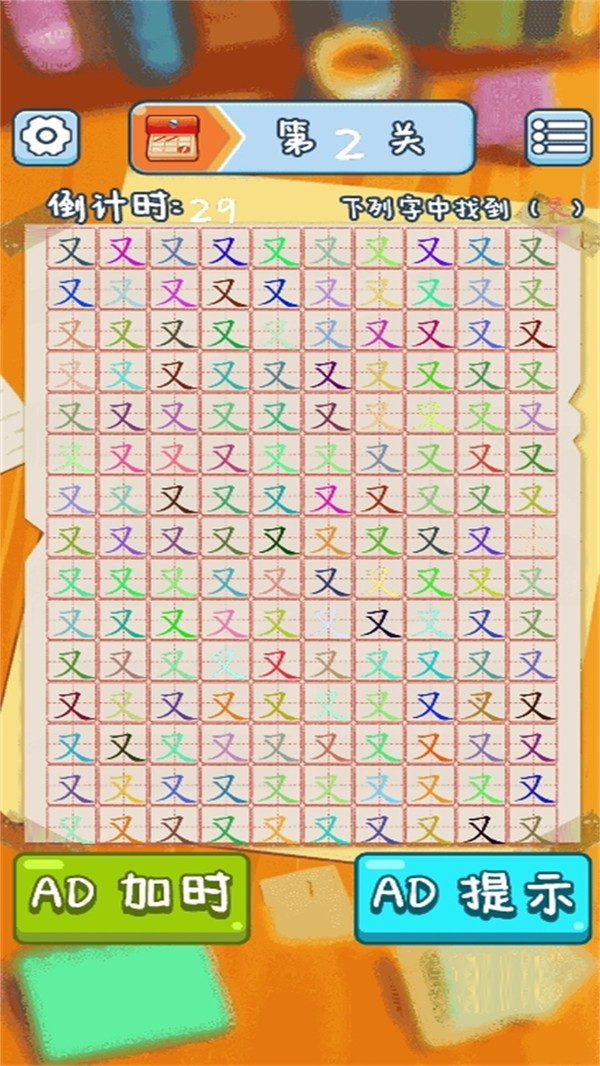 第 2 关
倒计时:29
下列字中找到（叉）
又又又又又又又又又又
又又又又又又又又又又
又又又又又又又又又又
又又又又又又又又又又
又又又又又又又又又又
又又又又又又又又又又
又又又又又又又又又又
又又又又又又又又又又
又又又又又又又又又又
又又又又又又又又又又
又又又又又又又又又又
又又又又又又又又叉又
又又又又又又又又又又
又又又又又又又又又又
又又又又又又又又又又
AD 加时
AD 提示